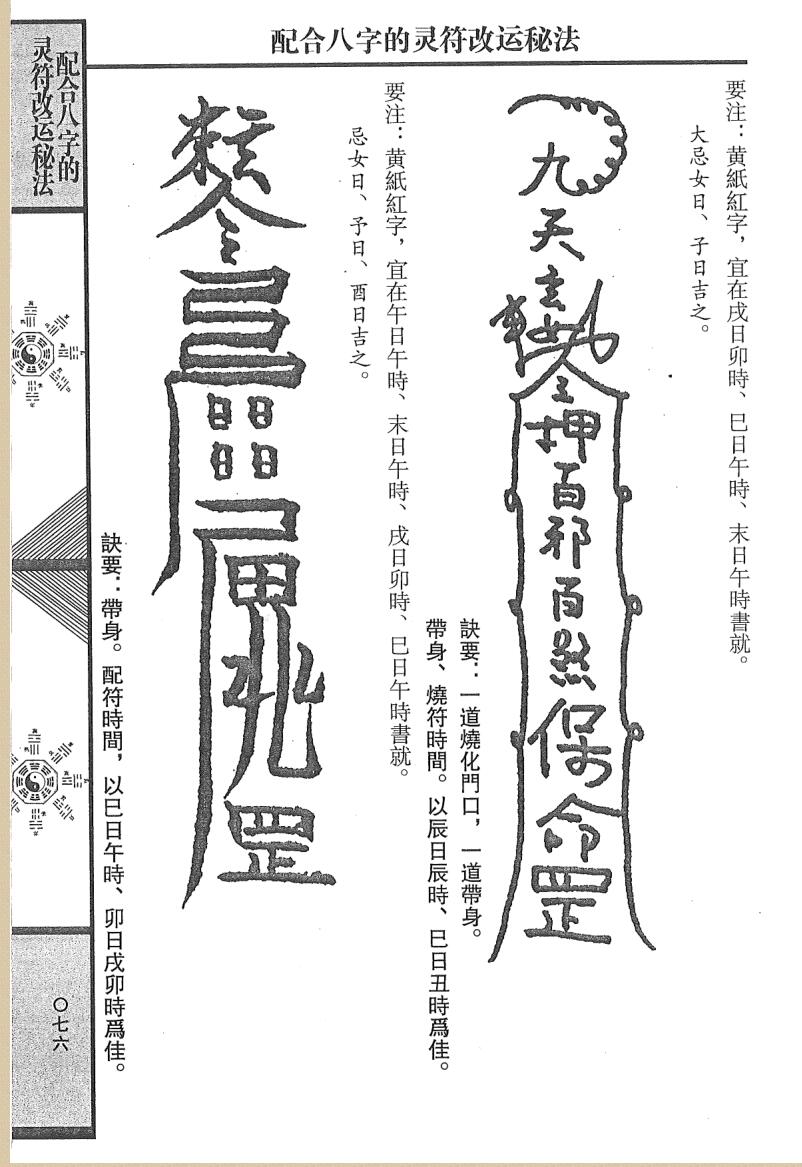 配合八字的灵符改运秘法
要注：黄紙紅字，宜在戌日卯時、巳日午時、末日午時書就。
大忌女日、子日吉之。
九天玄女
令押百邪百煞保命罡
訣要：一道燒化門口，一道帶身。
帶身、燒符時間。以辰日辰時、巳日丑時爲佳。
要注：黄紙紅字，宜在午日午時、末日午時、戌日卯時、巳日午時書就。
忌女日、予日、酉日吉之。
令
日日
日日
罡
訣要：帶身。配符時間，以巳日午時、卯日戌卯時爲佳。
配合八字的
灵符改运秘法
〇七六